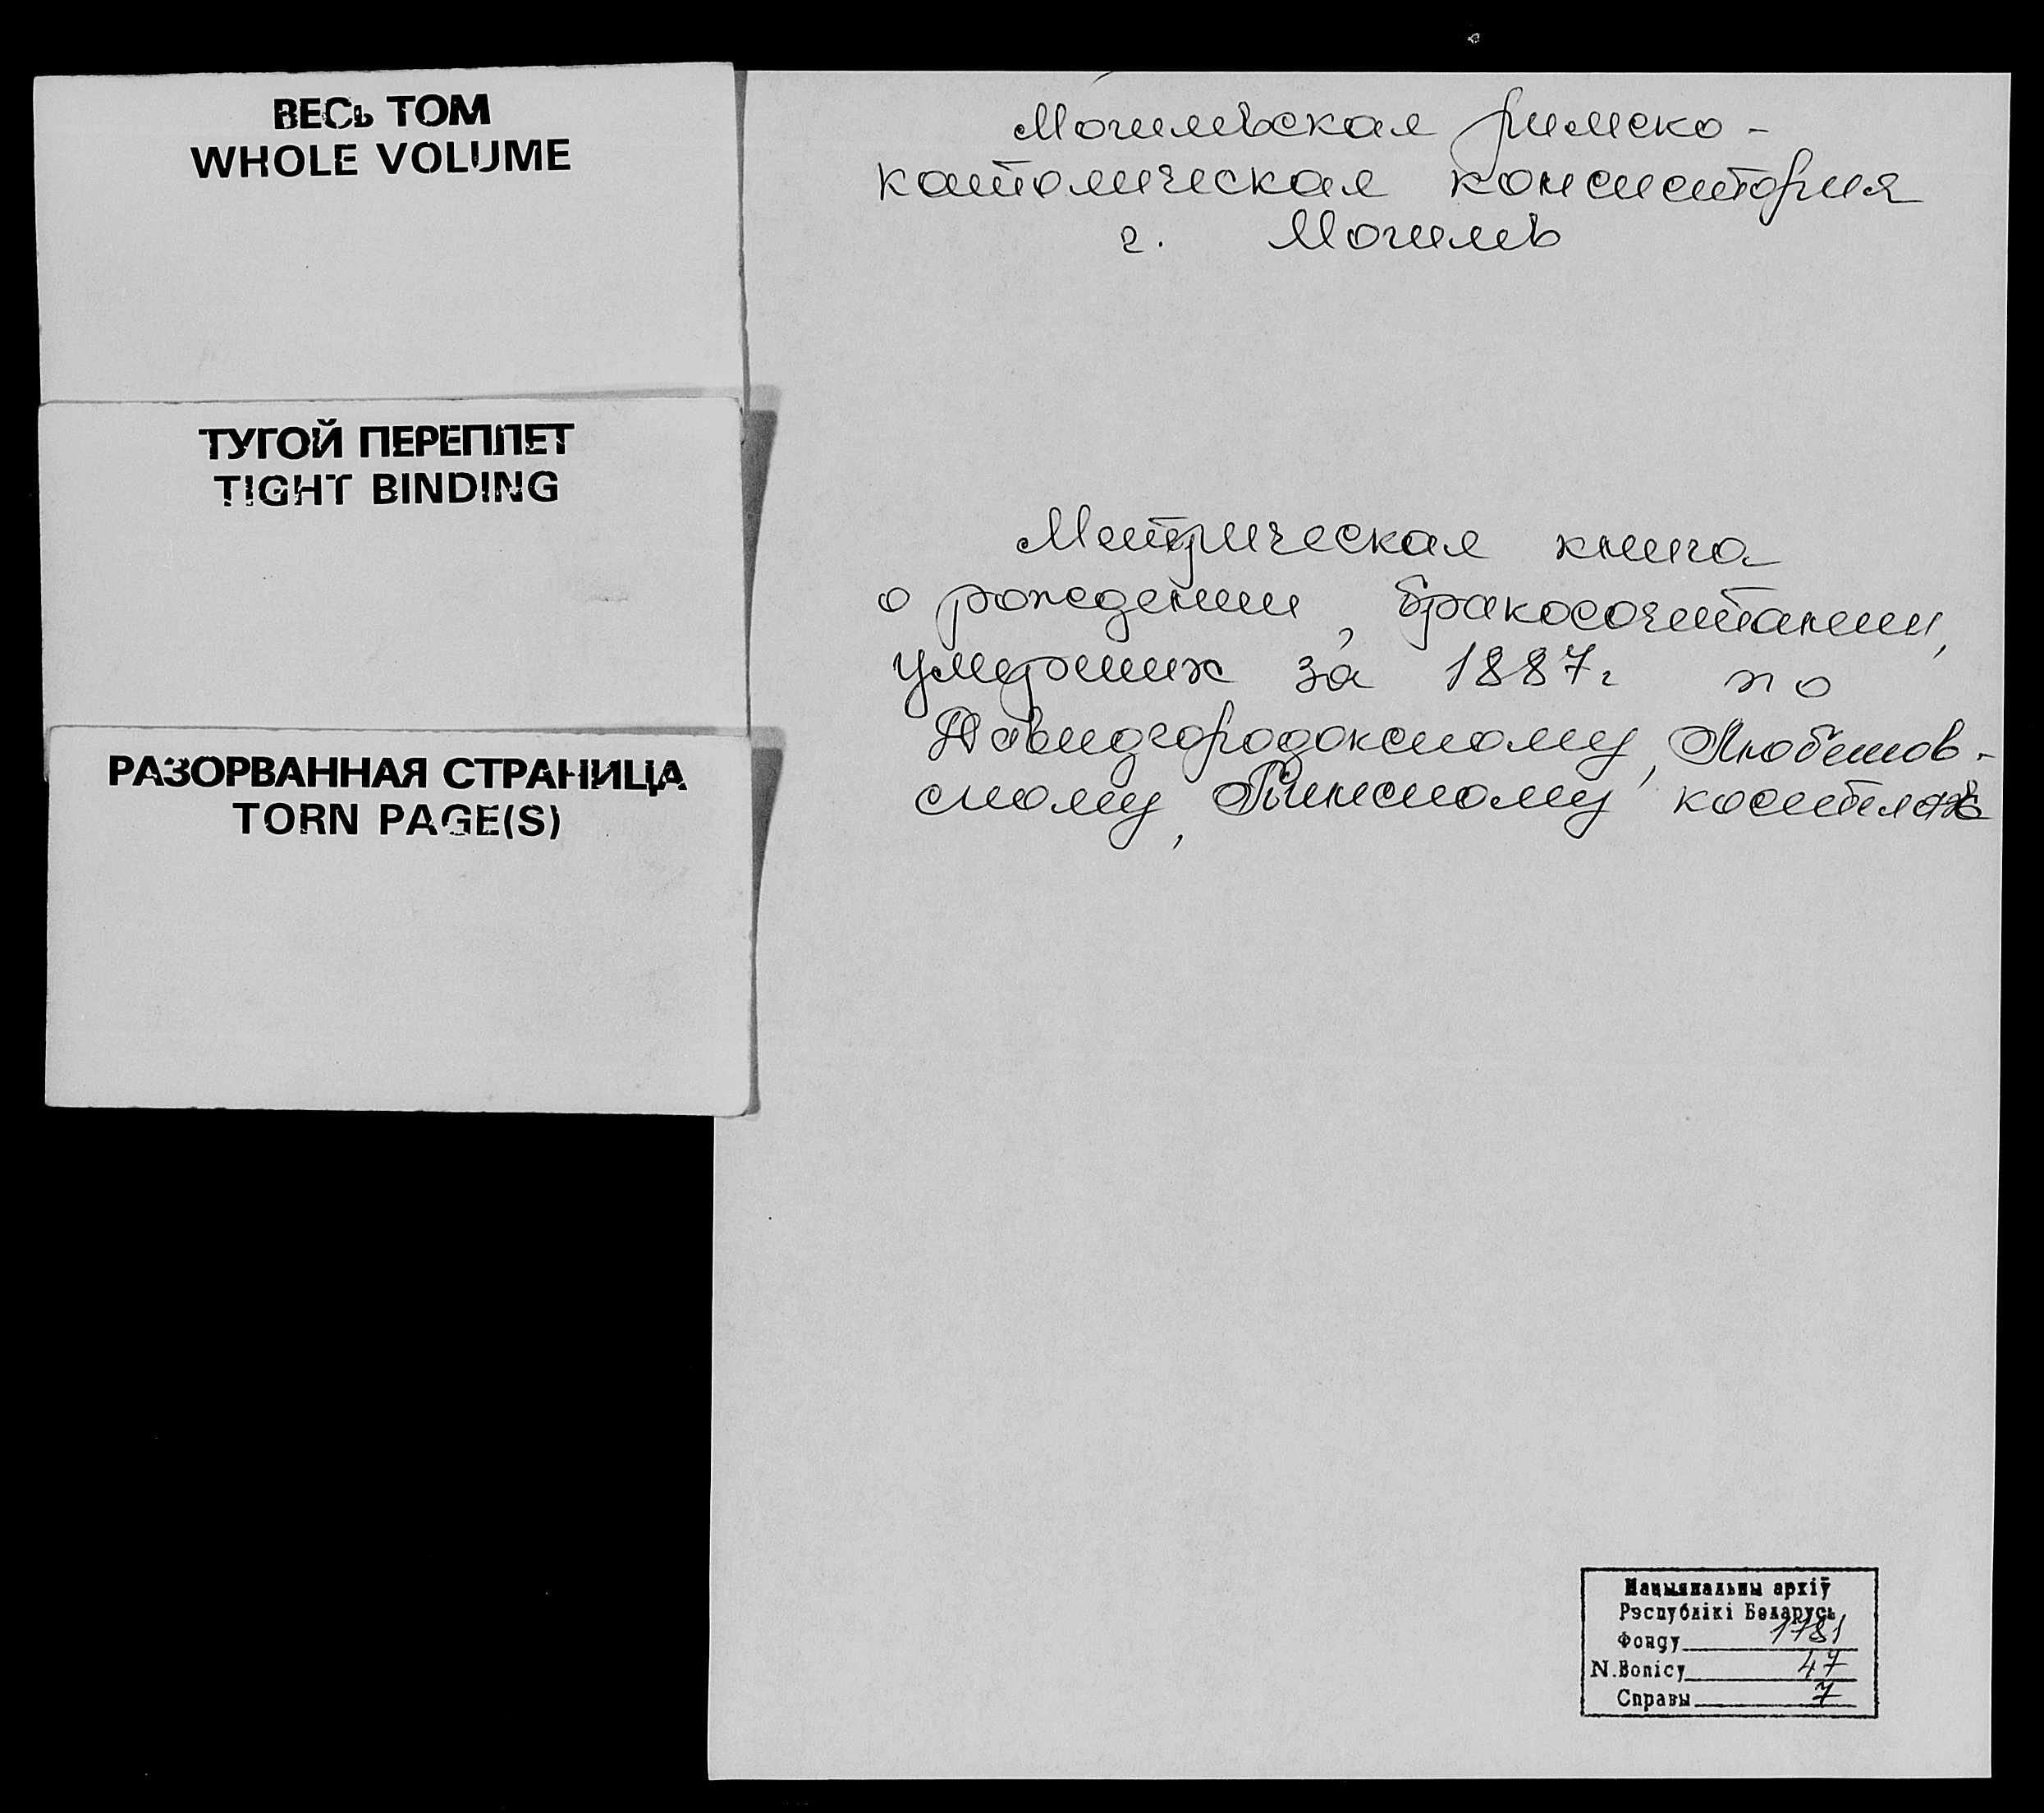 ВЕСЬ ТОМ
WHOLE VOLUME
ТУГОЙ ПЕРЕПЛЕТ
TIGHT BINDING
РАЗОРВАННАЯ СТРАНИЦА
TORN PAGE(S)
Могилевская римско-
католическая консистория
г. Могилев
Метрическая книга
о рождении, бракосочетании,
умерших за 1887г по
Давидгородокскому, Любешов-
скому, Пинскому костелах
Нацыянальны архіў
Рэспублікі Беларусь
Фонду 1781
N.Вопісу 47
Справы 7